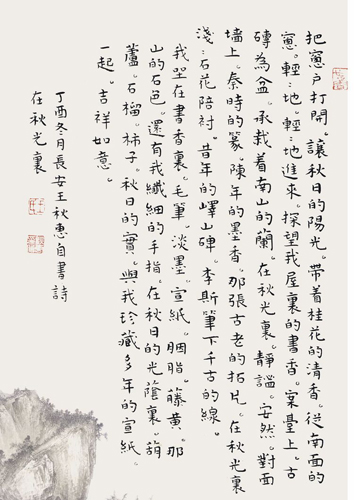 把窻户打開。讓秋日的陽光。带着桂花的清香。從南面的
窻。輕〻地。輕〻地進來。探望我屋裏的書香。案臺上。古
磚為盆。承載着南山的蘭。在秋光裏。靜謐。安然。對面
墻上。秦時的篆。陳年的墨香。那張古老的拓片。在秋光裏
淺〻石花陪衬。昔年的嶧山碑。李斯筆下千古的線。
我坐在書香裏。毛筆。淡墨。宣紙。胭脂。藤黄。那
山的石色。還有我纖細的手指。在秋日的光蔭裏。葫
蘆。石榴。柿子。秋日的實。與我珍藏多年的宣紙。
一起。吉祥如意。
丁酉冬月長安王秋惠自書詩
在秋光裏